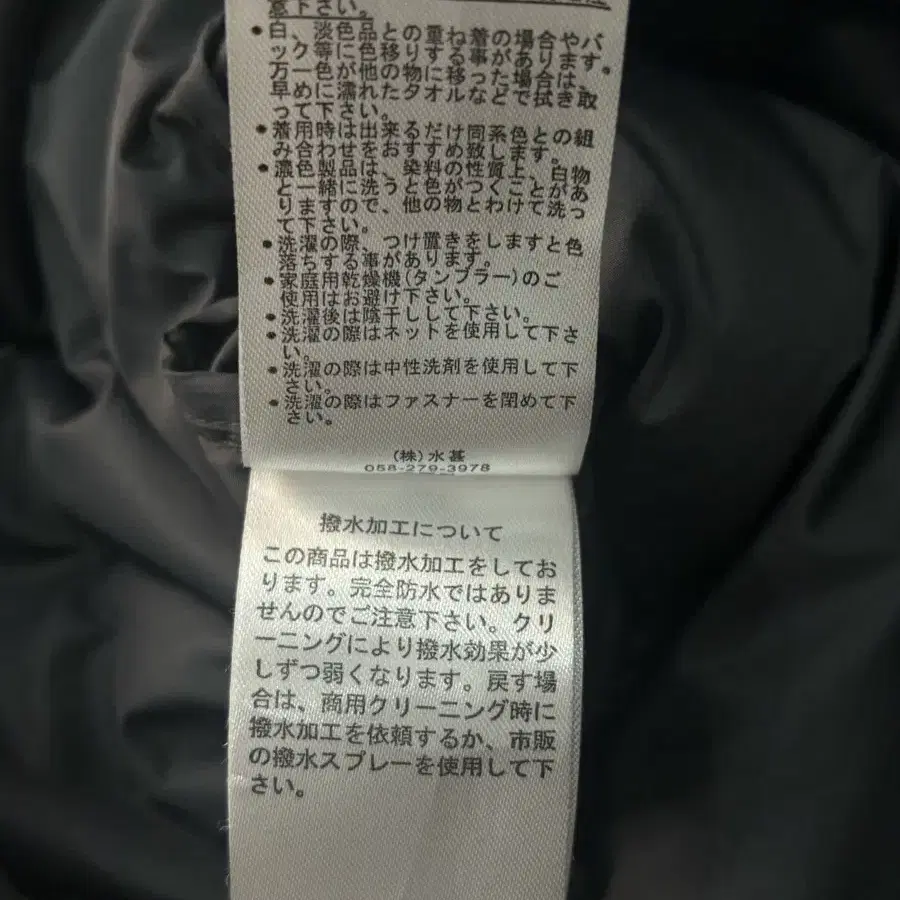 意下さい。
•白、淡色品との重ね着の場合やバ
ック等に色移りする事があります。
万一色が他の物に移った場合は、取
早めに濡れたタオルなどで拭き
って下さい。
•着用時は出来るだけ同系色との組
み合わせをおすすめ致します。
•濃色製品は、染料の性質上、白物
と一緒に洗うと色がつくことがあ
りますので、他の物とわけて洗っ
て下さい。
•洗濯の際、つけ置きをしますと色
落ちする事があります。
•家庭用乾燥機(タンブラー)のご
使用はお避け下さい。
•洗濯後は陰干しして下さい。
•洗濯の際はネットを使用して下さ
い。
•洗濯の際は中性洗剤を使用して下
さい。
•洗濯の際はファスナーを閉めて下
さい。
(株)水甚
058-279-3978
撥水加工について
この商品は撥水加工をしてお
ります。完全防水ではありま
せんのでご注意下さい。クリ
ーニングにより撥水効果が少
しずつ弱くなります。戻す場
合は、商用クリーニング時に
撥水加工を依頼するか、市販
の撥水スプレーを使用して下
さい。